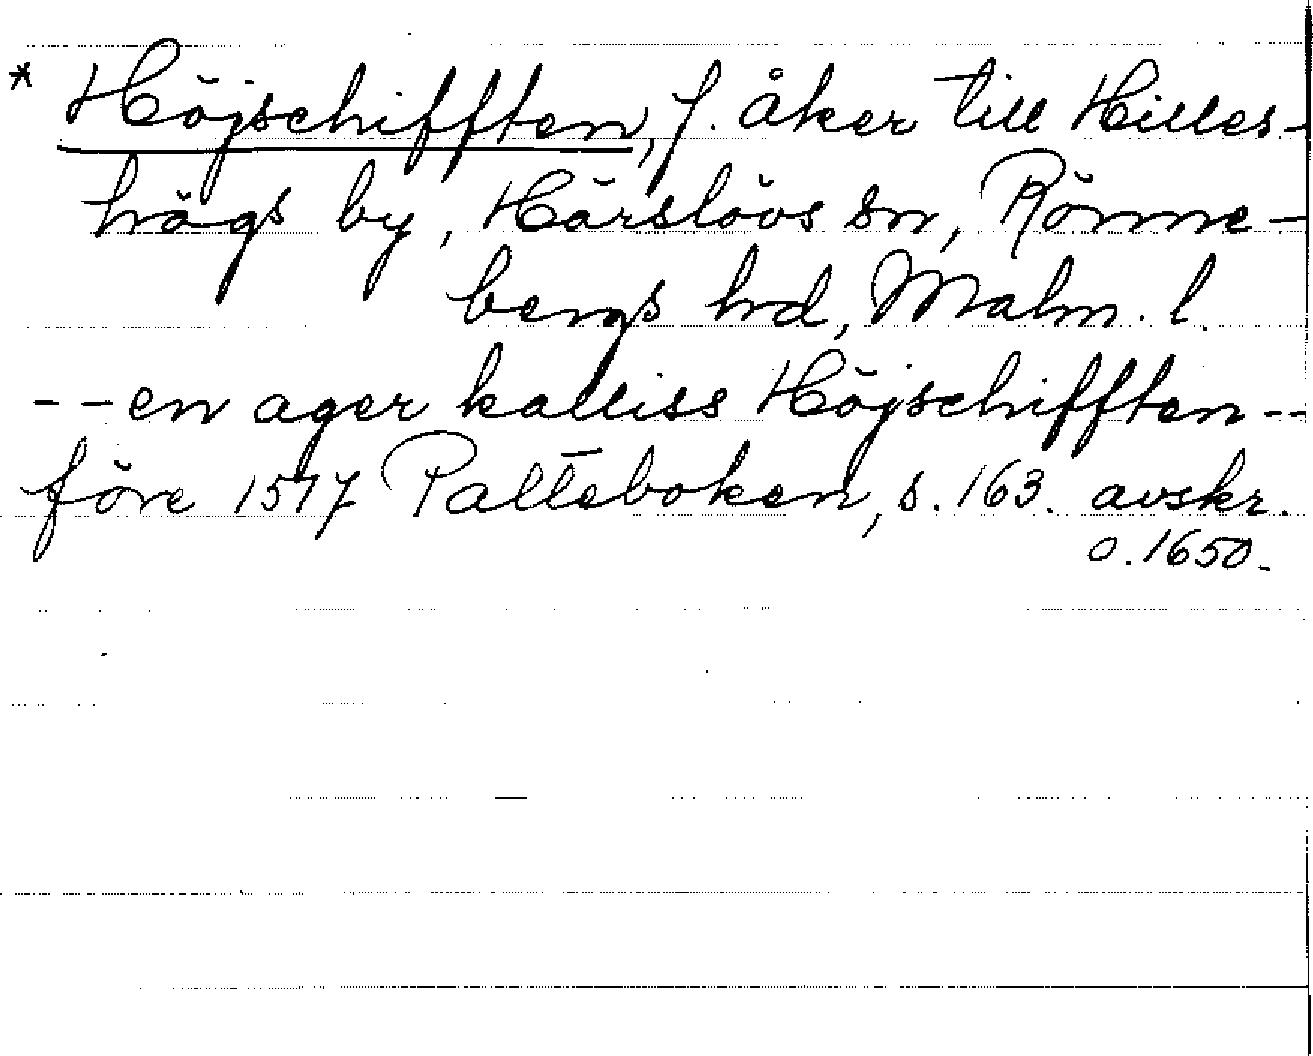 * Höjschifften, f. åker till Hilles-
högs by, Härslövs sn, Rönne-
bergs hd, Malm. l.
-- en ager kalliss Höjschifften --
före 1517 Palteboken, s. 163. avskr.
o. 1650.